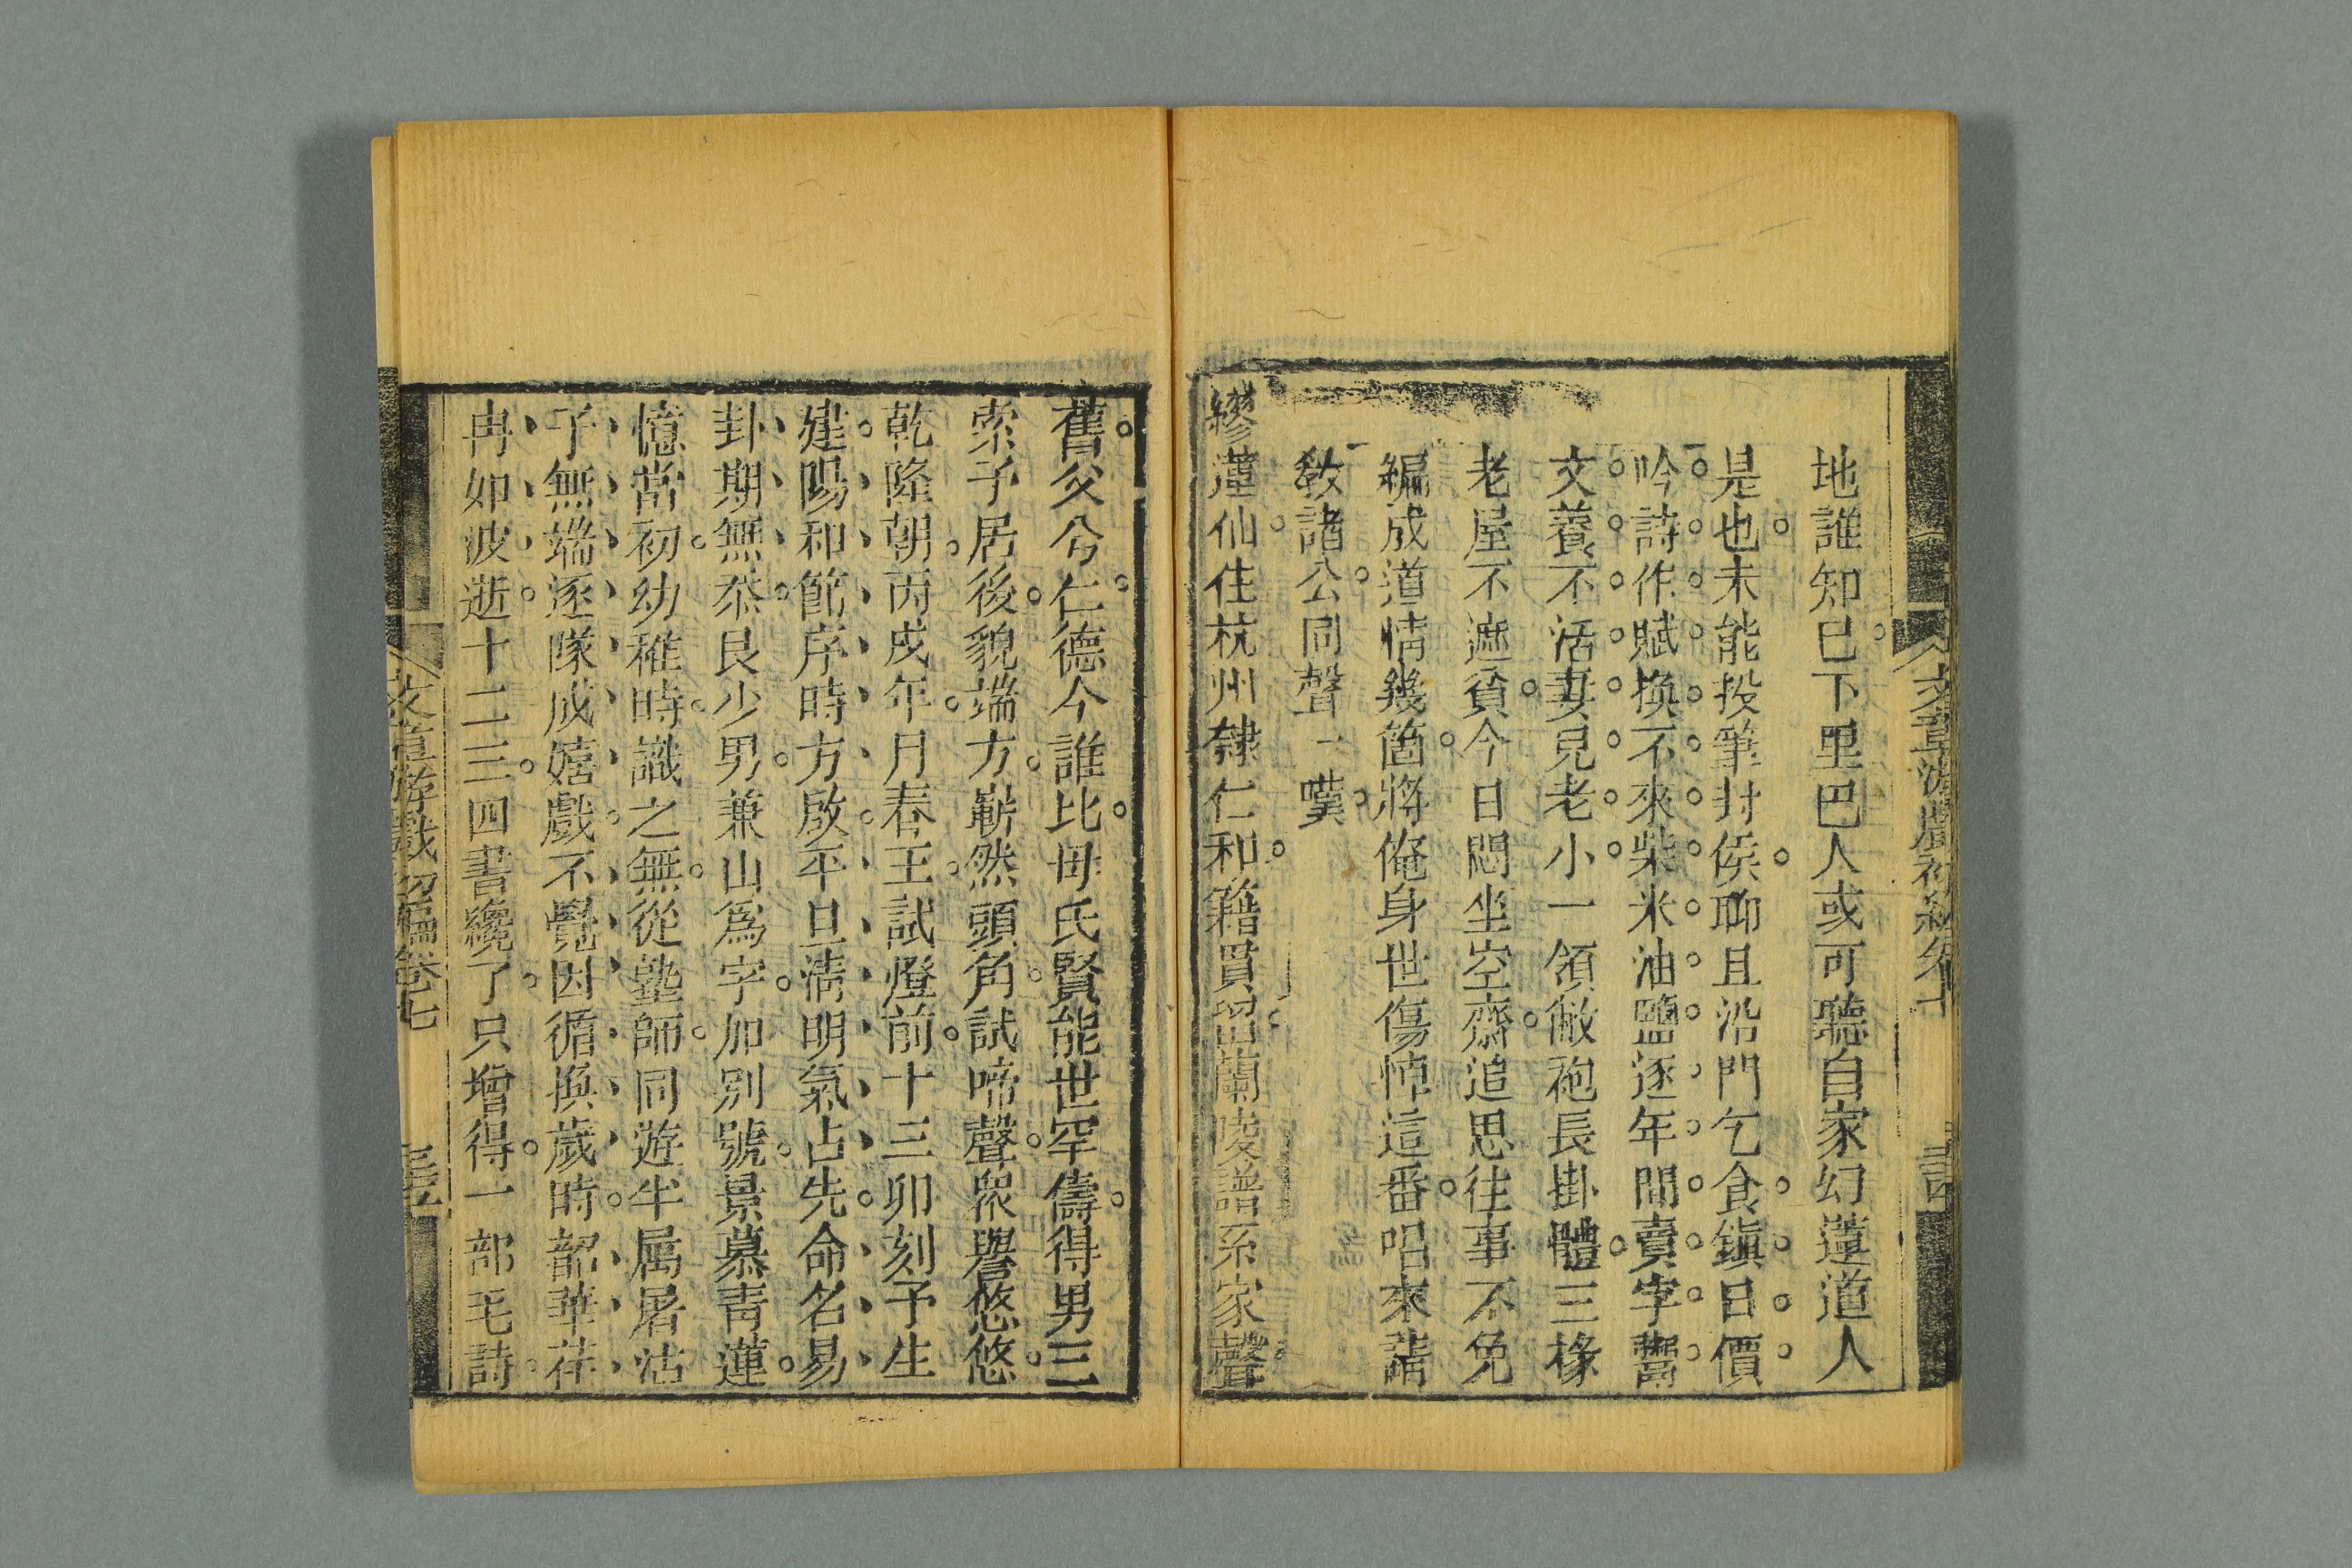 地誰知巳下里巴人或可聽自家幻蓮道人
是也未能投筆封侯聊且沿門乞食鎭日價
吟詩作賦換不來柴米油鹽逐年間賣字鬻
文養不活妻兒老小一領敝袍長掛體三椽
老屋不遮貧今日悶坐空齋追思往事不免
編成道情幾箇將俺身世傷悼這番唱來請
敎諸公同聲一嘆
繆蓮仙住杭州隸仁和籍貫留蘭陵譜系家聲
舊父兮仁德今誰比母氏賢能世罕儔得男三
索予居後貌端方嶄然頭角試啼聲衆譽悠悠
乾隆朝丙戌年月春王試燈前十三卯刻予生
建陽和節序時方啟平旦淸明氣占先命名易
卦期無忝艮少男兼山爲字加別號景慕靑蓮
憶當初幼稚時識之無從塾師同遊半屬屠沽
子無端逐隊成嬉戲不覺因循換歲時韶華荏
冉如波逝十二三四書纔了只增得一部毛詩
文章游戲初編卷七